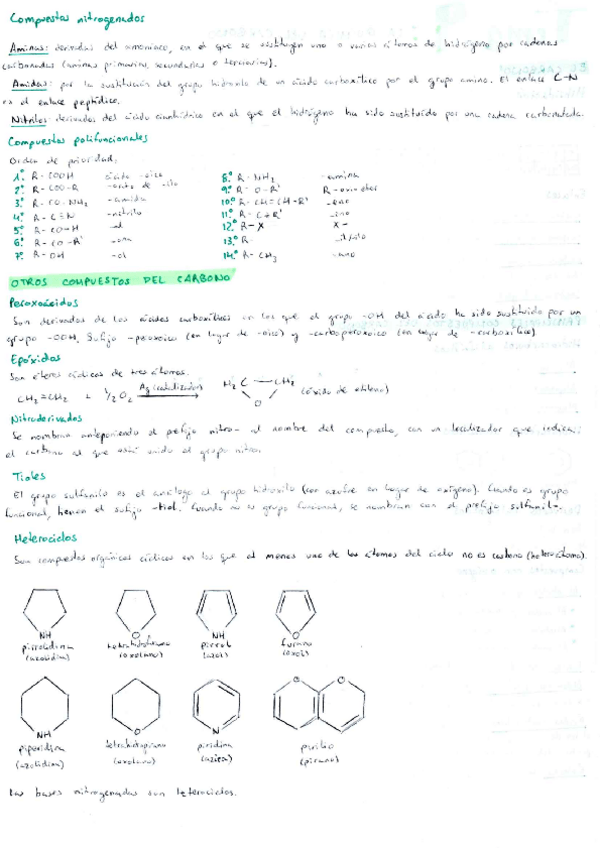 Compuestos nitrogenados
Aminas: derivadas del amoniaco, en el que se sustituyen uno o varios átomos de hidrógeno por cadenas
carbonadas (aminas primarias, secundarias o terciarias).
Amidas: por la sustitución del grupo hidroxilo de un ácido carboxílico por el grupo amino. El enlace C-N
es el enlace peptídico.
Nitrilos: derivados del ácido cianhídrico en el que el hidrógeno ha sido sustituido por una cadena carbonatada.
Compuestos polifuncionales
Orden de prioridad:
1º R-COOH ácido -oico
2º R-COO-R -oato de -ilo
3º R-CO-NH₂ -amida
4º R-C≡N -nitrilo
5º R-CO-H -al
6º R-CO-R' -ona
7º R-OH -ol
8º R-NH₂ -amina
9º R-O-R'
10º R-CH=CH-R' -eno
11º R-C≡R' -ino
12º R-X X-
13º R-
14º R-CH₃ -ano
OTROS COMPUESTOS DEL CARBONO
Peroxoácidos
Son derivados de los ácidos carboxílicos en los que el grupo -OH del ácido ha sido sustituido por un
grupo -OOH. Sufijo -peroxoico (en lugar de -oico) y -carboperoxoico (en lugar de -carboxílico)
Epóxidos
Son éteres cíclicos de tres átomos.
CH₂=CH₂ + 1/2 O₂ Ag (catalizador) H₂C CH₂ (óxido de etileno)
O
Nitroderivados
Se nombran anteponiendo el prefijo nitro- al nombre del compuesto, con un localizador que indica
el carbono al que está unido el grupo nitro.
Tioles
El grupo sulfanilo es el análogo al grupo hidroxilo (con azufre en lugar de oxígeno). Cuando es grupo
funcional, tienen el sufijo -tiol. Cuando no es grupo funcional, se nombran con el prefijo sulfanil-.
Heterociclos
Son compuestos orgánicos cíclicos en los que al menos uno de los átomos del ciclo no es carbono (heteroátomo).
NH O NH O
pirrolidina tetrahidrofurano pirrol furano
(azolidina) (oxolano) (azol) (oxol)
O O
NH O N
piperidina tetrahidropirano piridina pirilio
(azolidina) (oxolano) (pirano)
Las bases nitrogenadas son heterociclos.